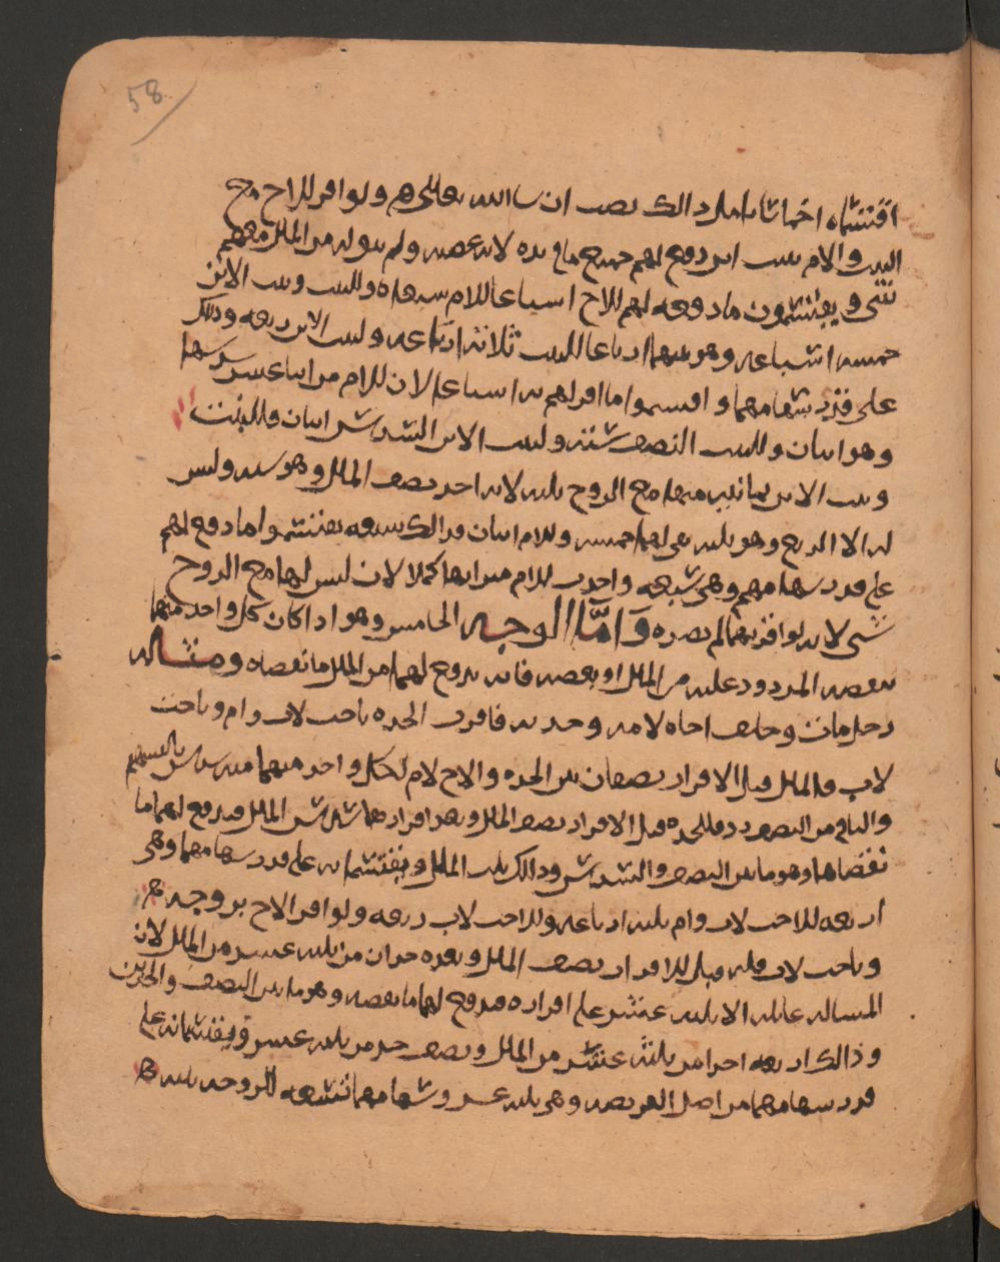 58
اقتسماه اخماسا تامل ذالك تصب ان شا الله تعالى هم ولو اقر للاخ مع
البنت والام ببنت ابن دفع لهم جميع ما في يده لانه عصبه ولم يبق له من المال معهم
شي ويقتسمون ما دفعه لهم للاخ اسباعا للام سبعاه وللبنت وبنت الابن
خمسه اسباعه وهو بينهما ارباعا للبنت ثلاثه ارباعه ولبنت الابن ربعه وذلك
على قدر سهامهما و اقتسموا ما اقر لهم به اسباعا لان للام من اثنا عشر سدسها
وهو اثنان وللبنت النصف سته ولبنت الابن السدس اثنان فللبنت
وبنت الابن ثمانيه منها مع الزوج ثلثه لانه اخذ نصف المال وهو سته وليس
له الا الربع وهو ثلثه بقي لهما خمسه وللام اثنان فذالك سبعه يقتسموا ما دفع لهم
على قدر سهامهم وهي سبعه واخذت للام ميراثها كملا لان ليس لها مع الزوج
شي لانه لو اقر بهما لم يضره وَاَمَّا الوجه الخامس وهو اذا كان كل واحد منهما
ينقصه المردود عليه من المال او بعضه فانه يدفع لهما من المال ما نقصاه ومثاله
رجل مات وخلف اخاه لامه وجدته فاقرت الجده باخت لاب وام وباخت
لاب فالمال قبل الاقرار نصفان بين الجده والاخ لام لكل واحد منهما سدس بالسهم
والباقي من النصف رد فللجده قبل الاقرار نصف المال وبعد اقرارهما سدس المال فيدفع لهما ما
نقصاها وهو ما بين النصف والسدس وذالك ثلث المال ويقتسمانه على قدر سهامهما وهي
اربعه للاخت لاب وام ثلثه ارباعه وللاخت لاب ربعه ولو اقر الاخ بزوجه
وباخت لاب فله قبل الاقرار نصف المال وبعده جزان من ثلثه عشر من المال لان
المساله عايله الا ثلثه عشر على اقراره فيدفع لهما ما نقصه وهو ما بين النصف والجزين
وذالك اربعه اجزا من ثلثه عشر من المال ونصف جز من ثلثه عشر ويقتسمانه على
قدر سهامهما من اصل الفريضه وهي ثلثه عشر وسهامهما تسعه للزوجه ثلثه